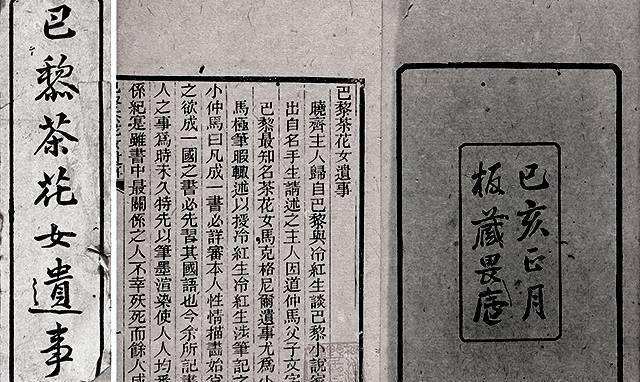 巴黎茶花女遺事
巴黎茶花女遺事
曉齋主人歸自巴黎與冷紅生談巴黎小說家
出自名手生請述之主人因道仲馬父子文字
巴黎最知名茶花女馬克格尼爾遺事尤爲小
馬極筆暇輒述以授冷紅生冷紅生涉筆記之
小仲馬曰凡成一書必詳審本人性情描畫始
之欲成一國之書必先習其國語也今余所記書
人之事爲時未久特先以筆墨渲染使人人均
係紀實雖書中最關係之人不幸殀死而餘人
己亥正月
板藏畏廬